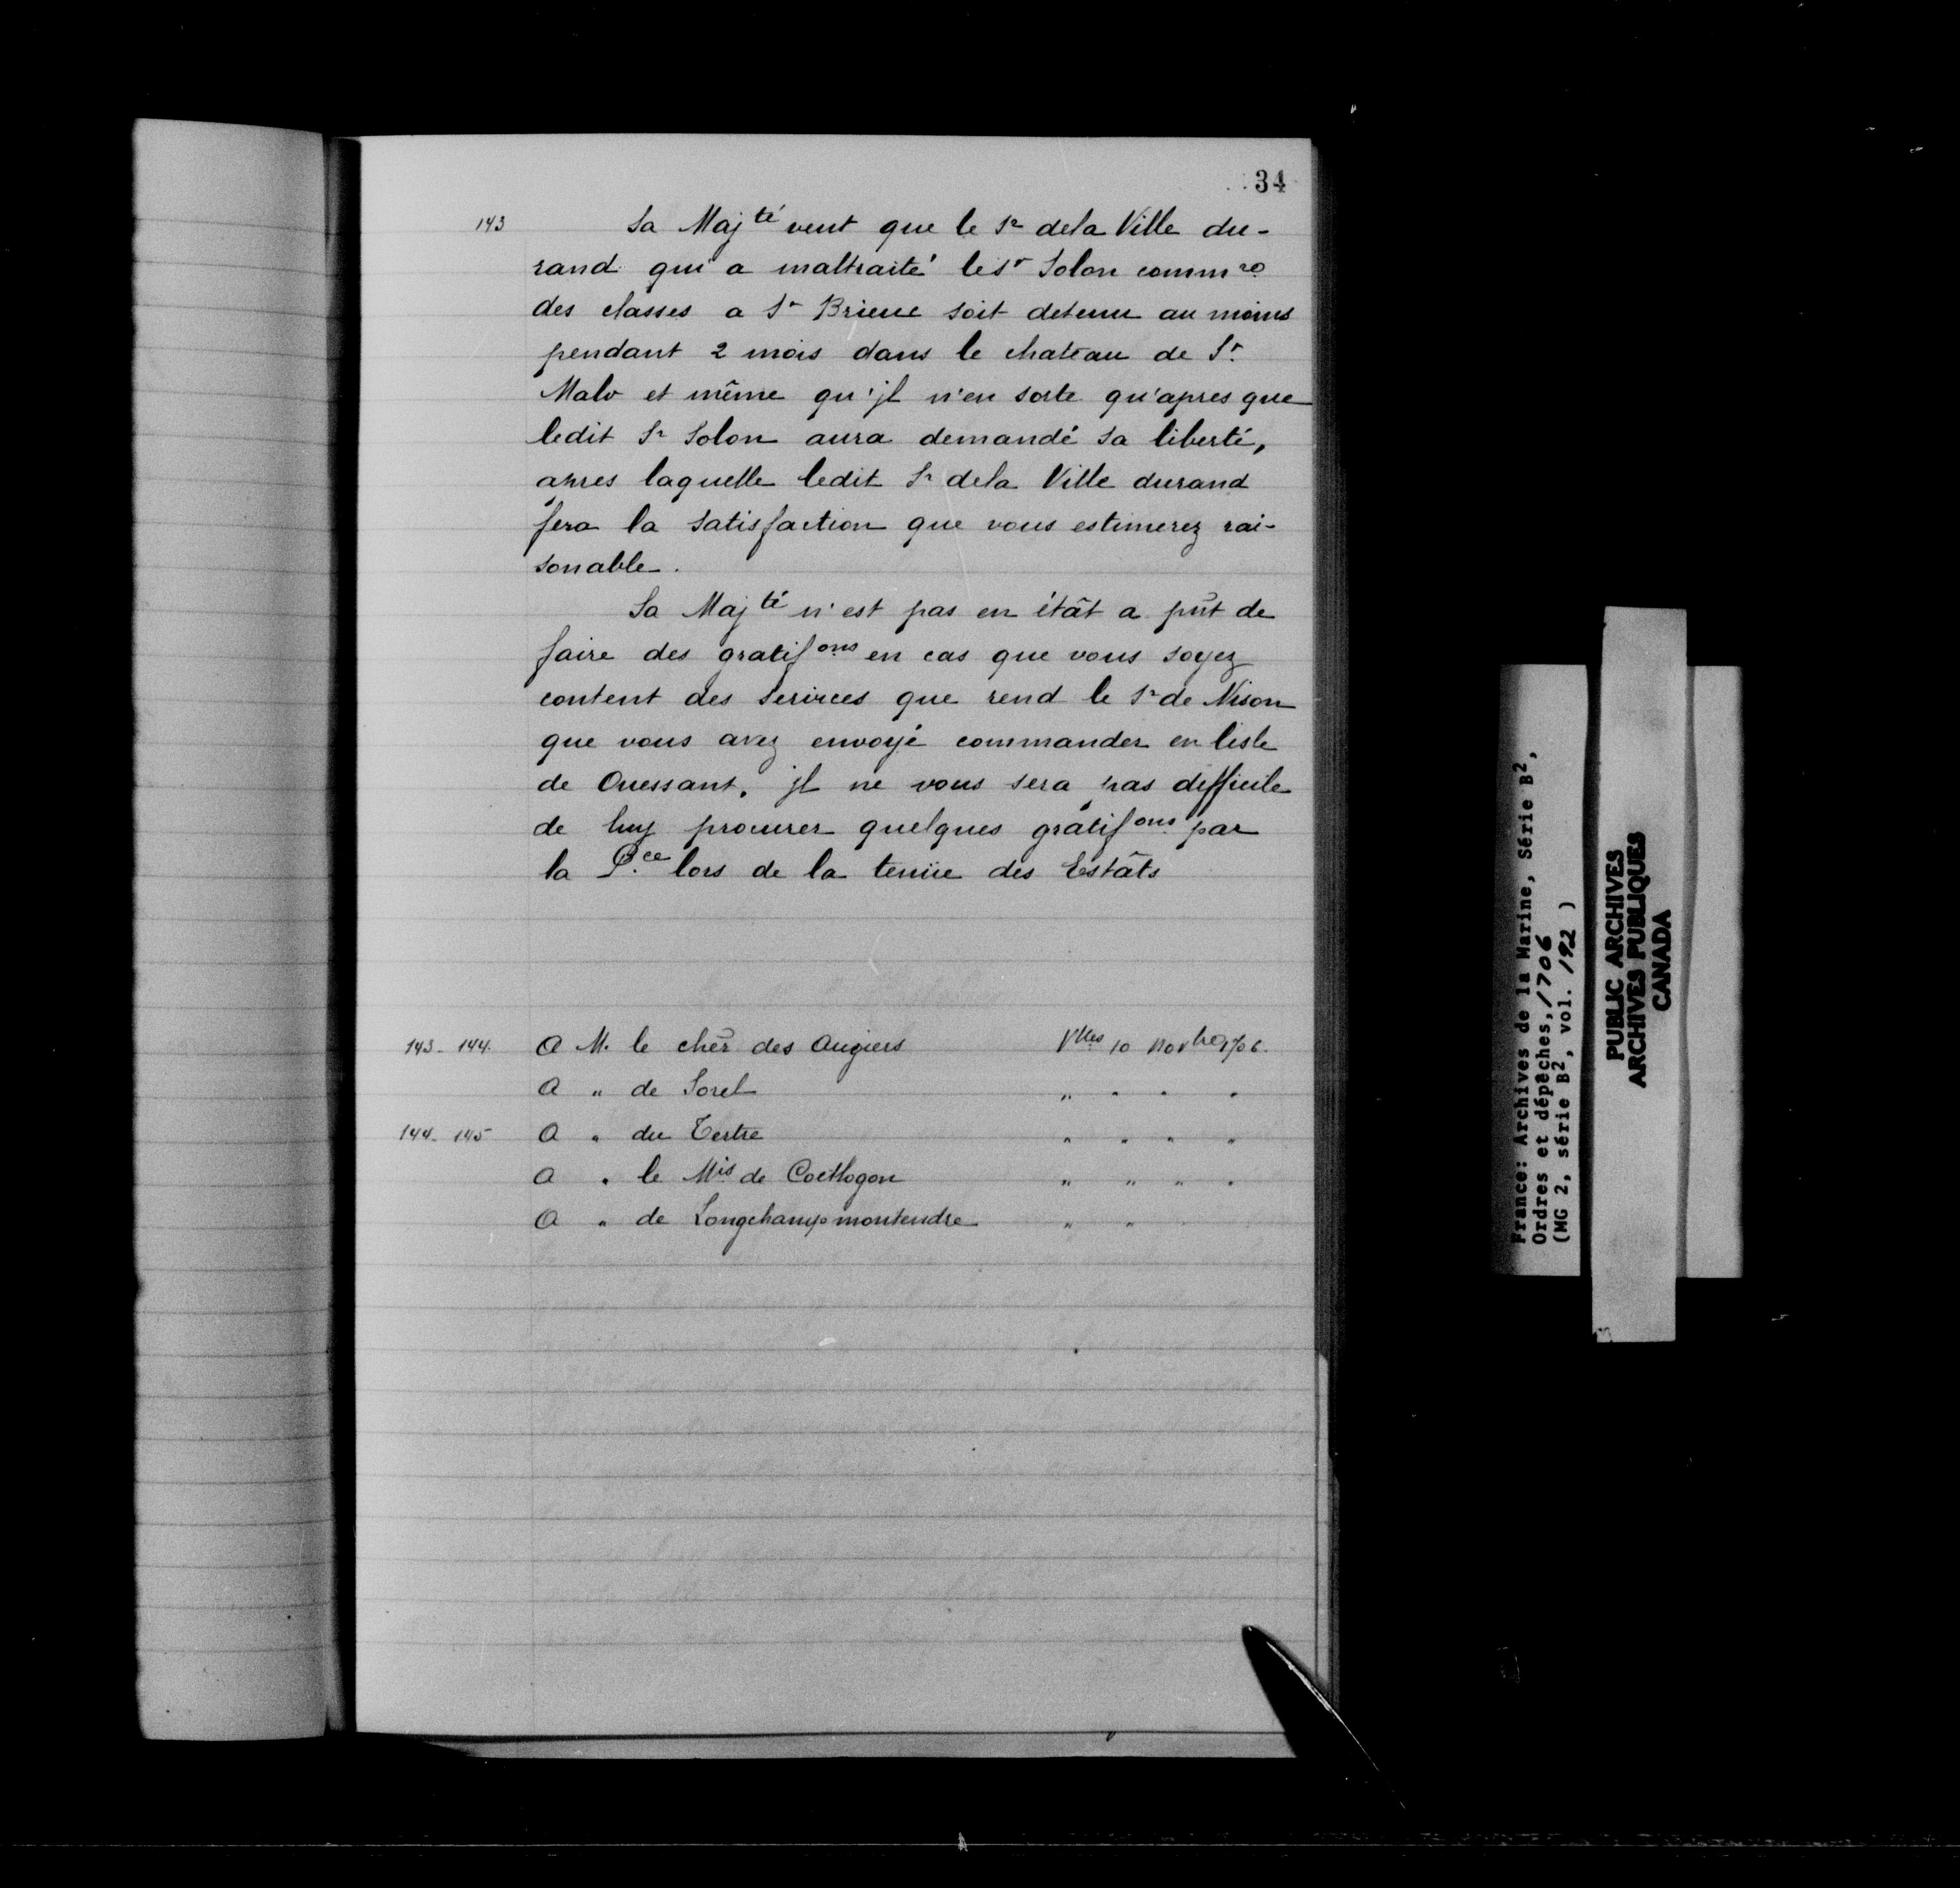 34
143 Sa Maj té veut que le Sr dela Ville du-
rand qui a maltraité le sr Solon commre
des classes a St Brieue soit detenu au moins
pendant 2 mois dans le chateau de St
Malo et même qu'jl n'en sorte qu'apres que
ledit Sr Solon aura demandé sa liberté,
apres laquelle ledit Sr dela Ville durand
fera la satisfaction que vous estimerez rai-
sonable.
Sa Maj té n'est pas en étât a pñt de
faire des gratif ons en cas que vous soyez
content des services que rend le Sr de Nison
que vous avez envoyé commander en lisle
de Ouessant, jl ne vous sera pas difficile
de luy procurer quelques gratif ons par
la Pce lors de la tenüe des Estâts
143-144. A M. le cher des Augiers Vlles 10 Novbre 1706.
A " de Sorel " " " "
144-145 A " du Tertre " " " "
A " le Mis de Coetlogon " " " "
A " de Longchamp montendre " "
France: Archives de la Marine, Série B2,
Ordres et dépêches, 1706
(MG 2, série B2, vol. 192 )
PUBLIC ARCHIVES
ARCHIVES PUBLIQUES
CANADA